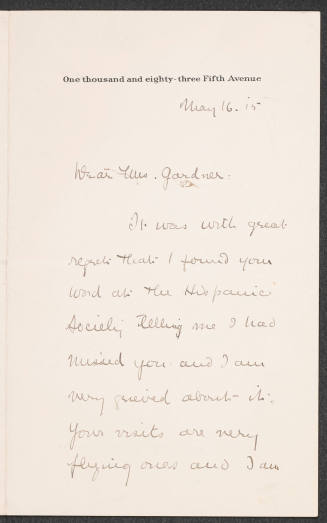 One thousand and eighty-three Fifth Avenue
May 16. 15
Dear Mrs. Gardner.
It was with great
regret that I found your
word at the Hispanic
Society telling me I had
missed you and I am
very grieved about it.
Your visits are very
flying ones and I am